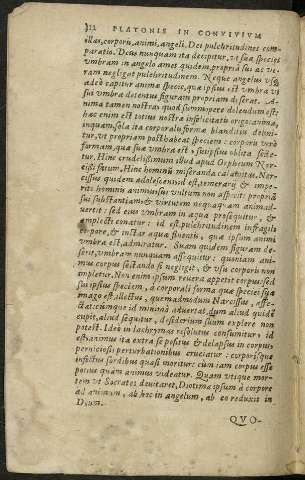 112 PLATONIS IN CONVIVIVM
illas, corporis, animi, angeli, Dei pulchritudines com-
paratio. Deus nunquam ita decipitur, vt suæ speciei
vmbram in angelo amet quidem, propriā sui ac ve-
ram negligat pulchritudinem. Neque angelus vsq;
adeò capitur animæ specie, quæ ipsius est vmbra vt
sua vmbra detentus figuram propriam deserat. A-
nima tamen nostra quod summopere dolendum est:
hæc enim est totius nostræ infelicitatis origo: anima,
inquam, sola ita corporalis formæ blanditijs delini-
tur, vt propriam posthabeat speciem: corporis verò
formam, quæ suæ vmbra est, suijpsius oblita secte-
tur. Hinc crudelissimum illud apud Orpheum Nar-
cissi fatum. Hinc hominū miseranda calamitas. Nar-
cissus quidem adolescens, id est, temerarij & impe-
riti hominis animus: sui vultum non aspicit: propriā
sui substantiam & virtutem nequaquam animad-
uertit: sed eius vmbram in aqua prosequitur, &
amplecti conatur: id est, pulchritudinem in fragili
corpore, & instar aquæ fluenti, quæ ipsius animi
vmbra est, admiratur. Suam quidem figuram de-
serit, vmbram nunquam assequitur: quoniam ani-
mus corpus sectando se negligit, & vsu corporis non
impletur. Non enim ipsum reuera appetit corpus: sed
sui ipsius speciem, à corporali forma quæ speciei suæ
imago est, illectus, quemadmodum Narcissus, affe-
ctat: cùmque id minimè aduertat, dum aliud quidē
cupit, aliud sequitur, desiderium suum explere non
potest. Ideò in lachrymas resolutus consumitur: id
est, animus ita extra se positus & delapsus in corpus,
perniciosis perturbationibus cruciatur: corporisque
infectus sordibus quasi moritur: cùm iam corpus esse
potius quàm animus videatur. Quam vtique mor-
tem vt Socrates deuitaret, Diotima ipsum à corpore
ad animum, ab hoc in angelum, ab eo reduxit in
Deum.
QVO-